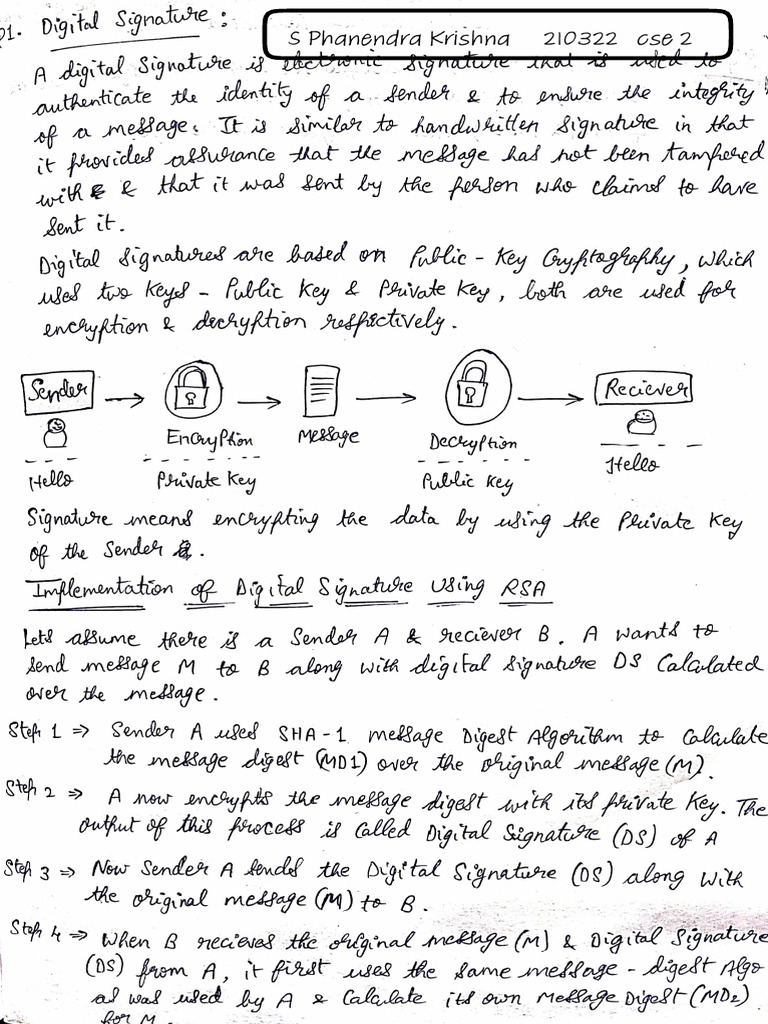 Q1. Digital Signature :
S Phanendra Krishna 210322 cse 2
A digital Signature is electronic signature that is used to
authenticate the identity of a sender & to ensure the integrity
of a message. It is similar to handwritten signature in that
it provides assurance that the message has not been tampered
with & that it was sent by the person who claims to have
sent it.
Digital signatures are based on Public - Key Cryptography, which
uses two keys - Public Key & Private Key, both are used for
encryption & decryption respictively.
Sender
Reciever
Encryption
Message
Decryption
Hello
Private Key
Public Key
Hello
Signature means encrypting the data by using the Private Key
of the Sender.
Implementation of Digital Signature Using RSA
Lets assume there is a Sender A & reciever B. A wants to
send message M to B along with digital signature DS Calculated
over the message.
Step 1 ⇒ Sender A uses SHA-1 message Digest Algorithm to Calculate
the message digest (MD1) over the original message (M).
Step 2 ⇒ A now encrypts the message digest with its private Key. The
output of this process is called Digital Signature (DS) of A
Step 3 ⇒ Now Sender A sends the Digital Signature (DS) along with
the original message (M) to B.
Step 4 ⇒ When B recieves the original message (M) & Digital Signature
(DS) from A, it first uses the same message - digest Algo
as was used by A & Calculate its own Message Digest (MD2)
for M.